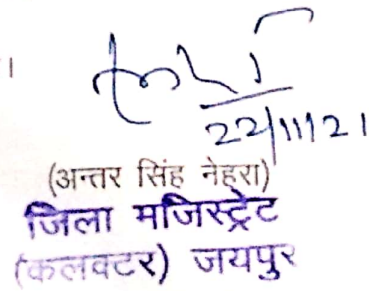 ।
22/11/21
(अन्तर सिंह नेहरा)
जिला मजिस्ट्रेट
(कलक्टर) जयपुर